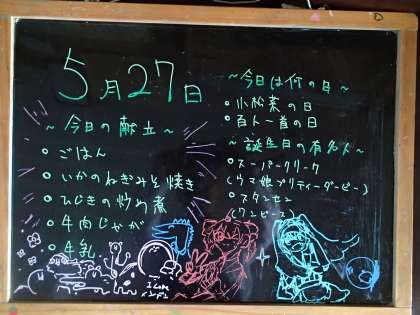 5月27日
～今日の献立～
・ごはん
・いかのねぎみそ焼き
・ひじきの炒め煮
・牛肉じゃが
・牛乳
～今日は何の日～
・小松菜の日
・百人一首の日
～誕生日の有名人～
・スーパークリーク
(ウマ娘プリティーダービー)
・スタンセン
(ワンピース)
I Love